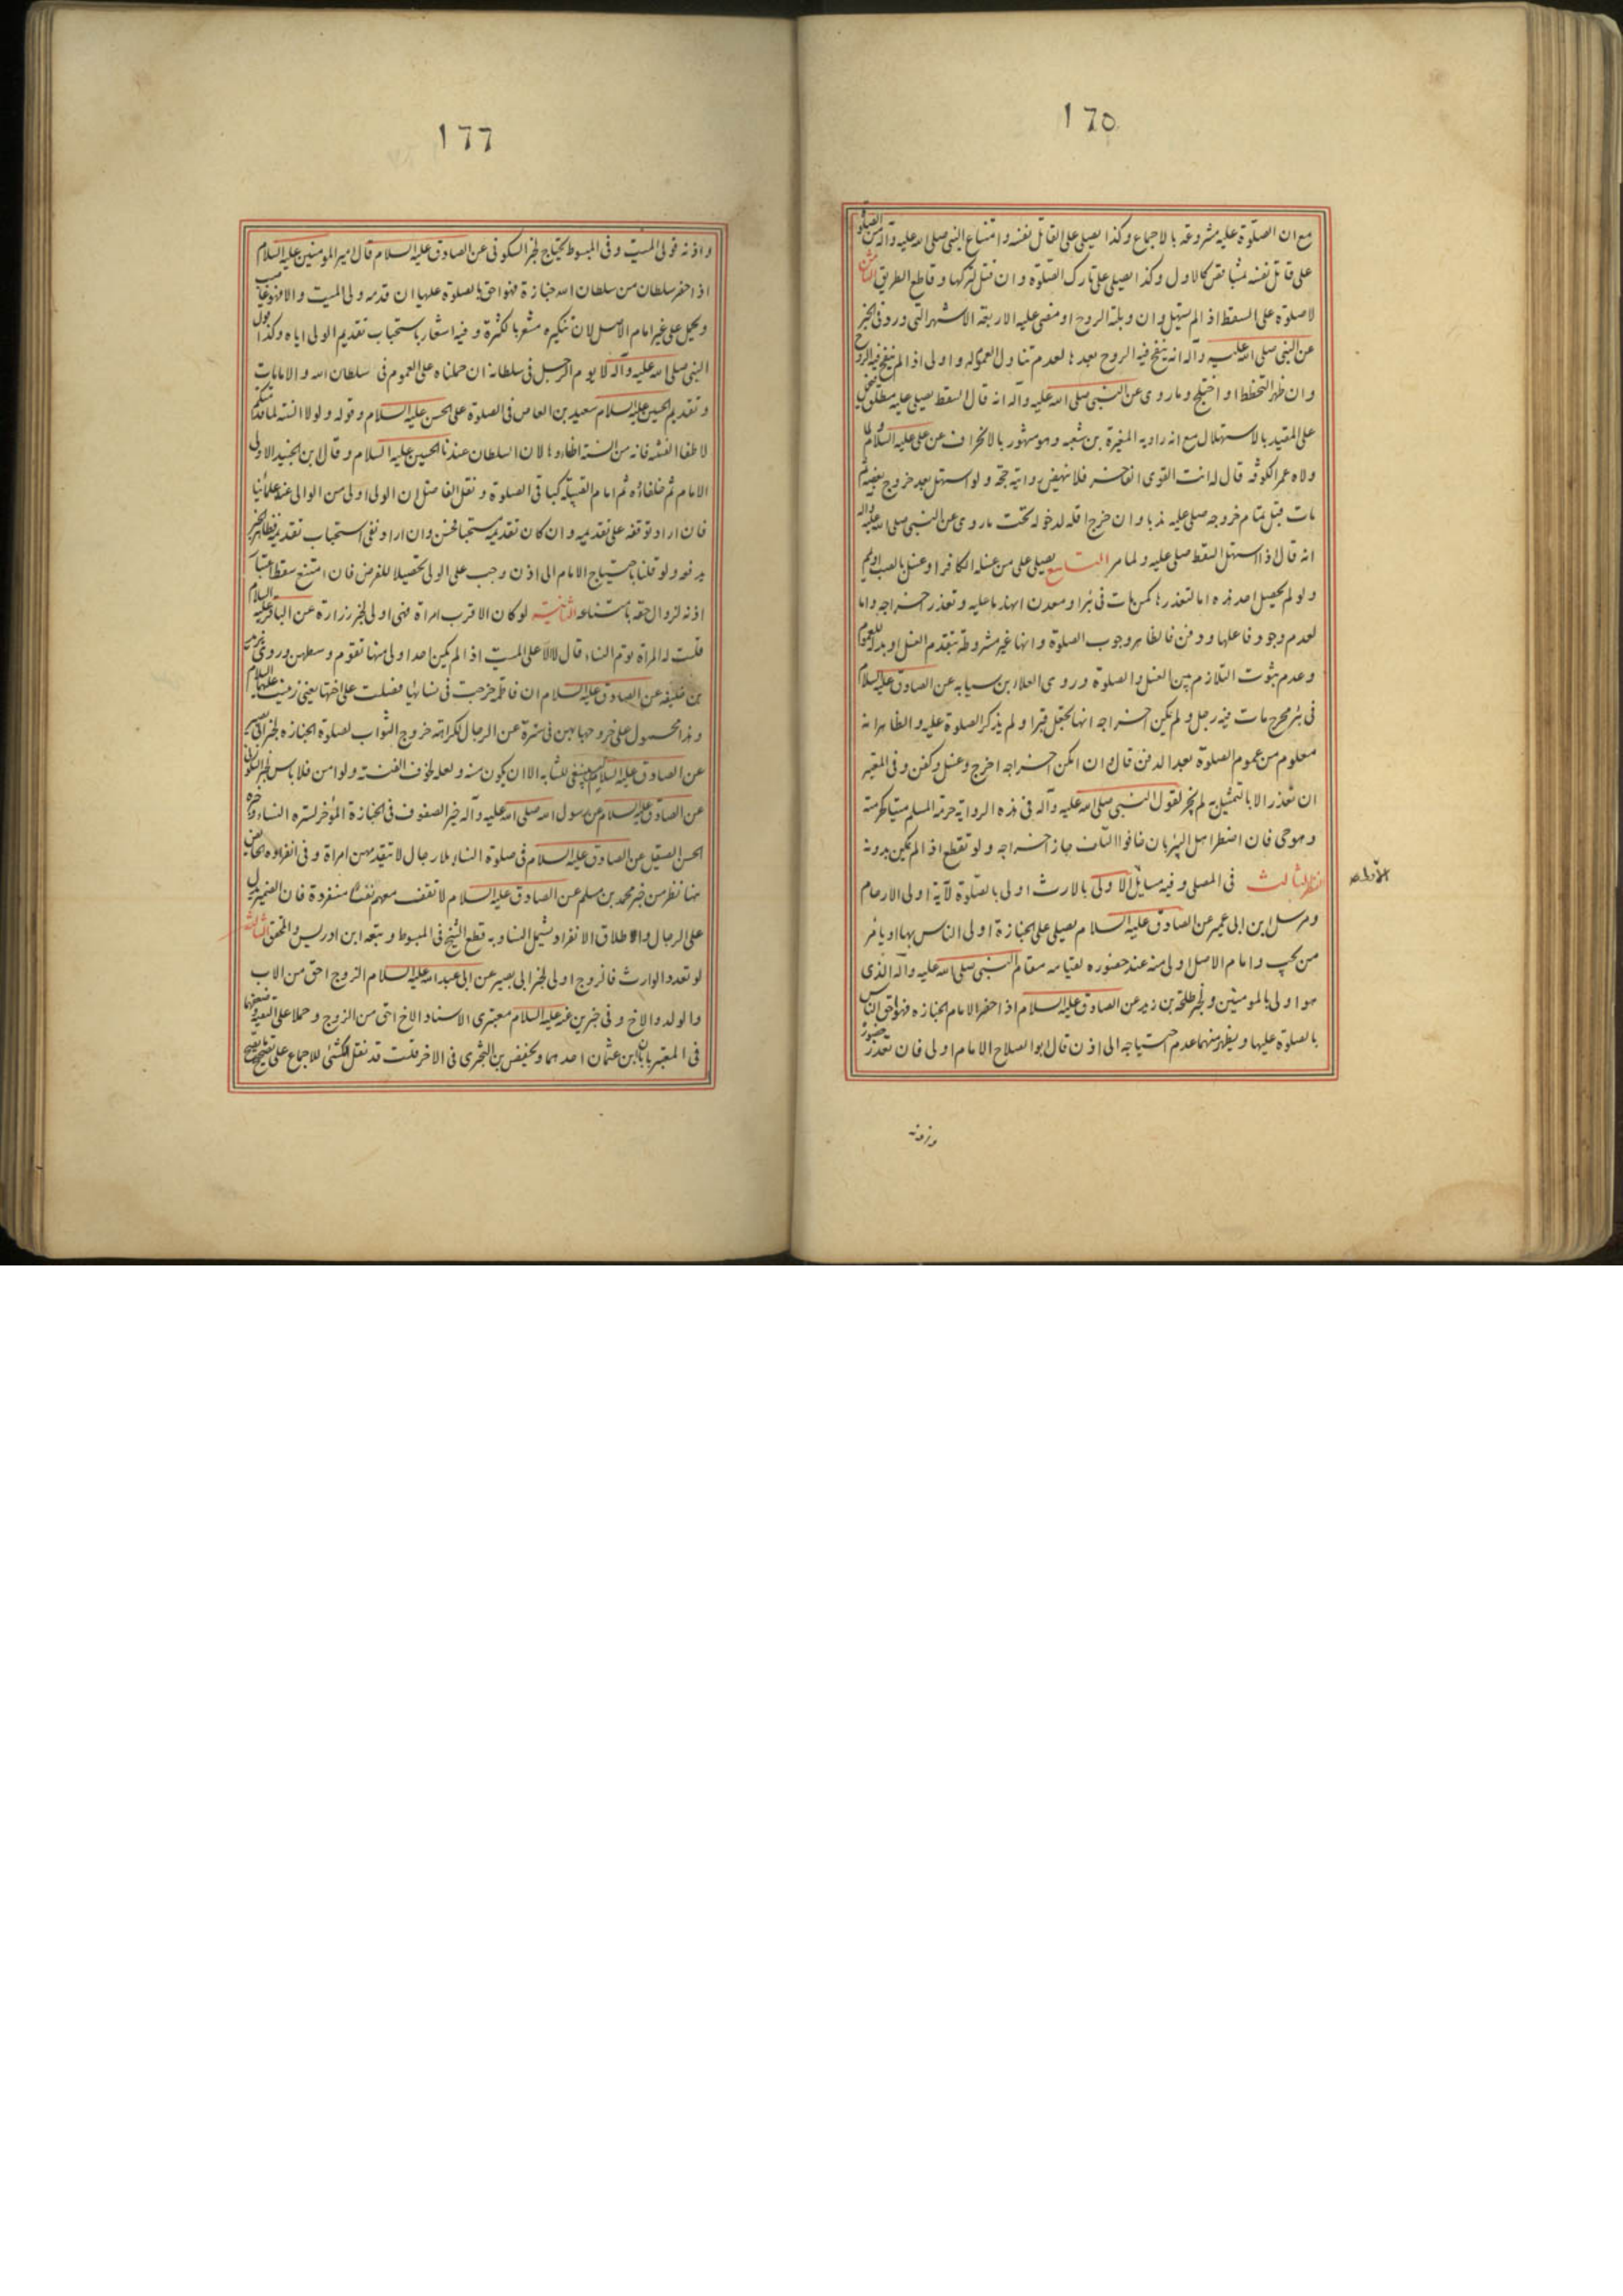 ١٦٥
مع ان الصلوة عليه مشروعة بالاجماع وكذا يصلى على القاتل نفسه وامتناع النبى صلى الله عليه وآله من الصلوة
على قاتل نفسه كالاول وكذا يصلى على تارك الصلوة وان قتل لتركها وقاطع الطريق الثامن
لا صلوة على السقط اذا لم يستهل وان ولجته الروح او مضى عليه الاربعة الاشهر التى ورد فى الخبر
عن النبى صلى الله عليه وآله انه ينفخ فيه الروح بعدها لعدم تناول العموم له واولى اذا لم ينفخ فيه الروح
وان ظهر التخطط او اختلج وما روى عن النبى صلى الله عليه وآله انه قال السقط يصلى عليه مطلق فيحمل
على المقيد بالاستهلال مع انه راويه المغيرة بن شعبه وهو مشهور بالانحراف عن على عليه السلام لما
ولاه عمر الكوفة قال له انت القوى الفاجر فلا ينهض روايته حجة ولو استهل بعد خروج بعضه ثم
مات قبل تمام خروجه صلى عليه ندبا وان خرج اقله لدخوله تحت ما روى عن النبى صلى الله عليه وآله
انه قال اذا استهل السقط صلى عليه ولما مر التاسع يصلى على من غسله الكافر او غسل بالصب او يمم
ولو لم يحصل احد هذه اما لتعذرها كمن مات فى بئر او معدن انهدما عليه وتعذر اخراجه واما
لعدم وجود فاعلها ودفن فالظاهر وجوب الصلوة وانها غير مشروطة بتقدم الغسل او بدله للعموم
وعدم ثبوت التلازم بين الغسل والصلوة وروى العلا بن سيابه عن الصادق عليه السلام
فى بئر محرج مات فيه رجل ولم يمكن اخراجه انها تجعل قبرا ولم يذكر الصلوة عليه والظاهر انه
معلوم من عموم الصلوة بعد الدفن قال وان امكن اخراجه اخرج وغسل وكفن وفى المعتبر
ان تعذر الا بالتمثيل به لم يجز لقول النبى صلى الله عليه وآله فى هذه الرواية حرمة المسلم ميتا كحرمته
وهو حى فان اضطر اهل البئر بان خافوا التلف جاز اخراجه ولو تقطع اذا لم يمكن بدونه
النظر الثالث فى المصلى وفيه مسايل الاولى بالارث اولى بالصلوة لآية اولى الارحام
ومرسل ابن ابى عمير عن الصادق عليه السلام يصلى على الجنازة اولى الناس بها او يامر
من يحب وامام الاصل اولى منه عند حضوره لقيامه مقام النبى صلى الله عليه وآله الذى
هو اولى بالمومنين ولخبر طلحة بن زيد عن الصادق عليه السلام اذا حضر الامام الجنازه فهو احق الناس
بالصلوة عليها ويظهر منهما عدم احتياجه الى اذن قال ابو الصلاح الامام اولى فان تعذر حضوره
واذنه
١٦٦
واذنه فولى الميت وفى المبسوط يحتاج لخبر السكونى عن الصادق عليه السلام قال امير المومنين عليه السلام
اذا حضر سلطان من سلطان الله جنازة فهو احق بالصلوة عليها ان قدمه ولى الميت والا فهو غاصب
ويحمل على غير امام الاصل لان تنكيره مشعر بالكثرة وفيه اشعار باستحباب تقديم الولى اياه وكذا قول
النبى صلى الله عليه وآله لا يوم الرجل فى سلطانه ان حملناه على العموم فى سلطان الله والامامات
وتقديم الحسين عليه السلام سعيد بن العاص فى الصلوة على الحسن عليه السلام وقوله ولولا السنة لما قدمتك
لاطفاء الفتنة فانه من السنة اطفاؤها لان السلطان عندنا الحسين عليه السلام وقال ابن الجنيد الاولى
الامام ثم خلفاؤه ثم امام القبيلة كباقى الصلوة ونقل الفاضل ان الولى اولى من الوالى عند علمائنا
فان اراد توقفه على تقديمه وان كان تقديمه مستحبا فحسن وان اراد نفى استحباب تقديمه فظاهر الخبر
يدفعه ولو قلنا باحتياج الامام الى اذن وجب على الولى تحصيلا للفرض فان امتنع سقط اعتبار
اذنه لزوال حقه بامتناعه الثانية لو كان الاقرب امراة فهى اولى لخبر زرارة عن الباقر عليه السلام
قلت له المراة توم النساء قال لا الا على الميت اذا لم يكن احد اولى منها تقوم وسطهن وروى يزيد
بن خليفه عن الصادق عليه السلام ان فاطمة خرجت فى نسائها فصلت على اختها يعنى زينب عليها السلام
وهذا محمول على خروجها بهن فى سترة عن الرجال لكراهة خروج الشواب لصلوة الجنازه لخبر ابى بصير
عن الصادق عليه السلام ليس ينبغى للشابه الا ان يكون مسنه ولعله لخوف الفتنه ولو امن فلا باس لخبر السكونى
عن الصادق عليه السلام عن رسول الله صلى الله عليه وآله خير الصفوف فى الجنازة المؤخر لستره النساء وخبر
الحسن الصيقل عن الصادق عليه السلام فى صلوة النساء بلا رجال لا تتقدمهن امراة وفى انفراد الحائض
هنا نظر من خبر محمد بن مسلم عن الصادق عليه السلام لا تقف معهم تقف منفردة فان الضمير يدل
على الرجال واطلاق الانفراد يشمل النساء وبه قطع الشيخ فى المبسوط وتبعه ابن ادريس والمحقق الثالثة
لو تعدد الوارث فالزوج اولى لخبر ابى بصير عن ابى عبد الله عليه السلام الزوج احق من الاب
والولد والاخ وفى خبرين عنه عليه السلام معتبرى الاسناد الاخ احق من الزوج وحملا على التقية وضعفهما
فى المعتبر بابان بن عثمان احدهما وبحفص بن البخترى فى الاخر قلت قد نقل الكشى الاجماع على تصحيح ما يصح